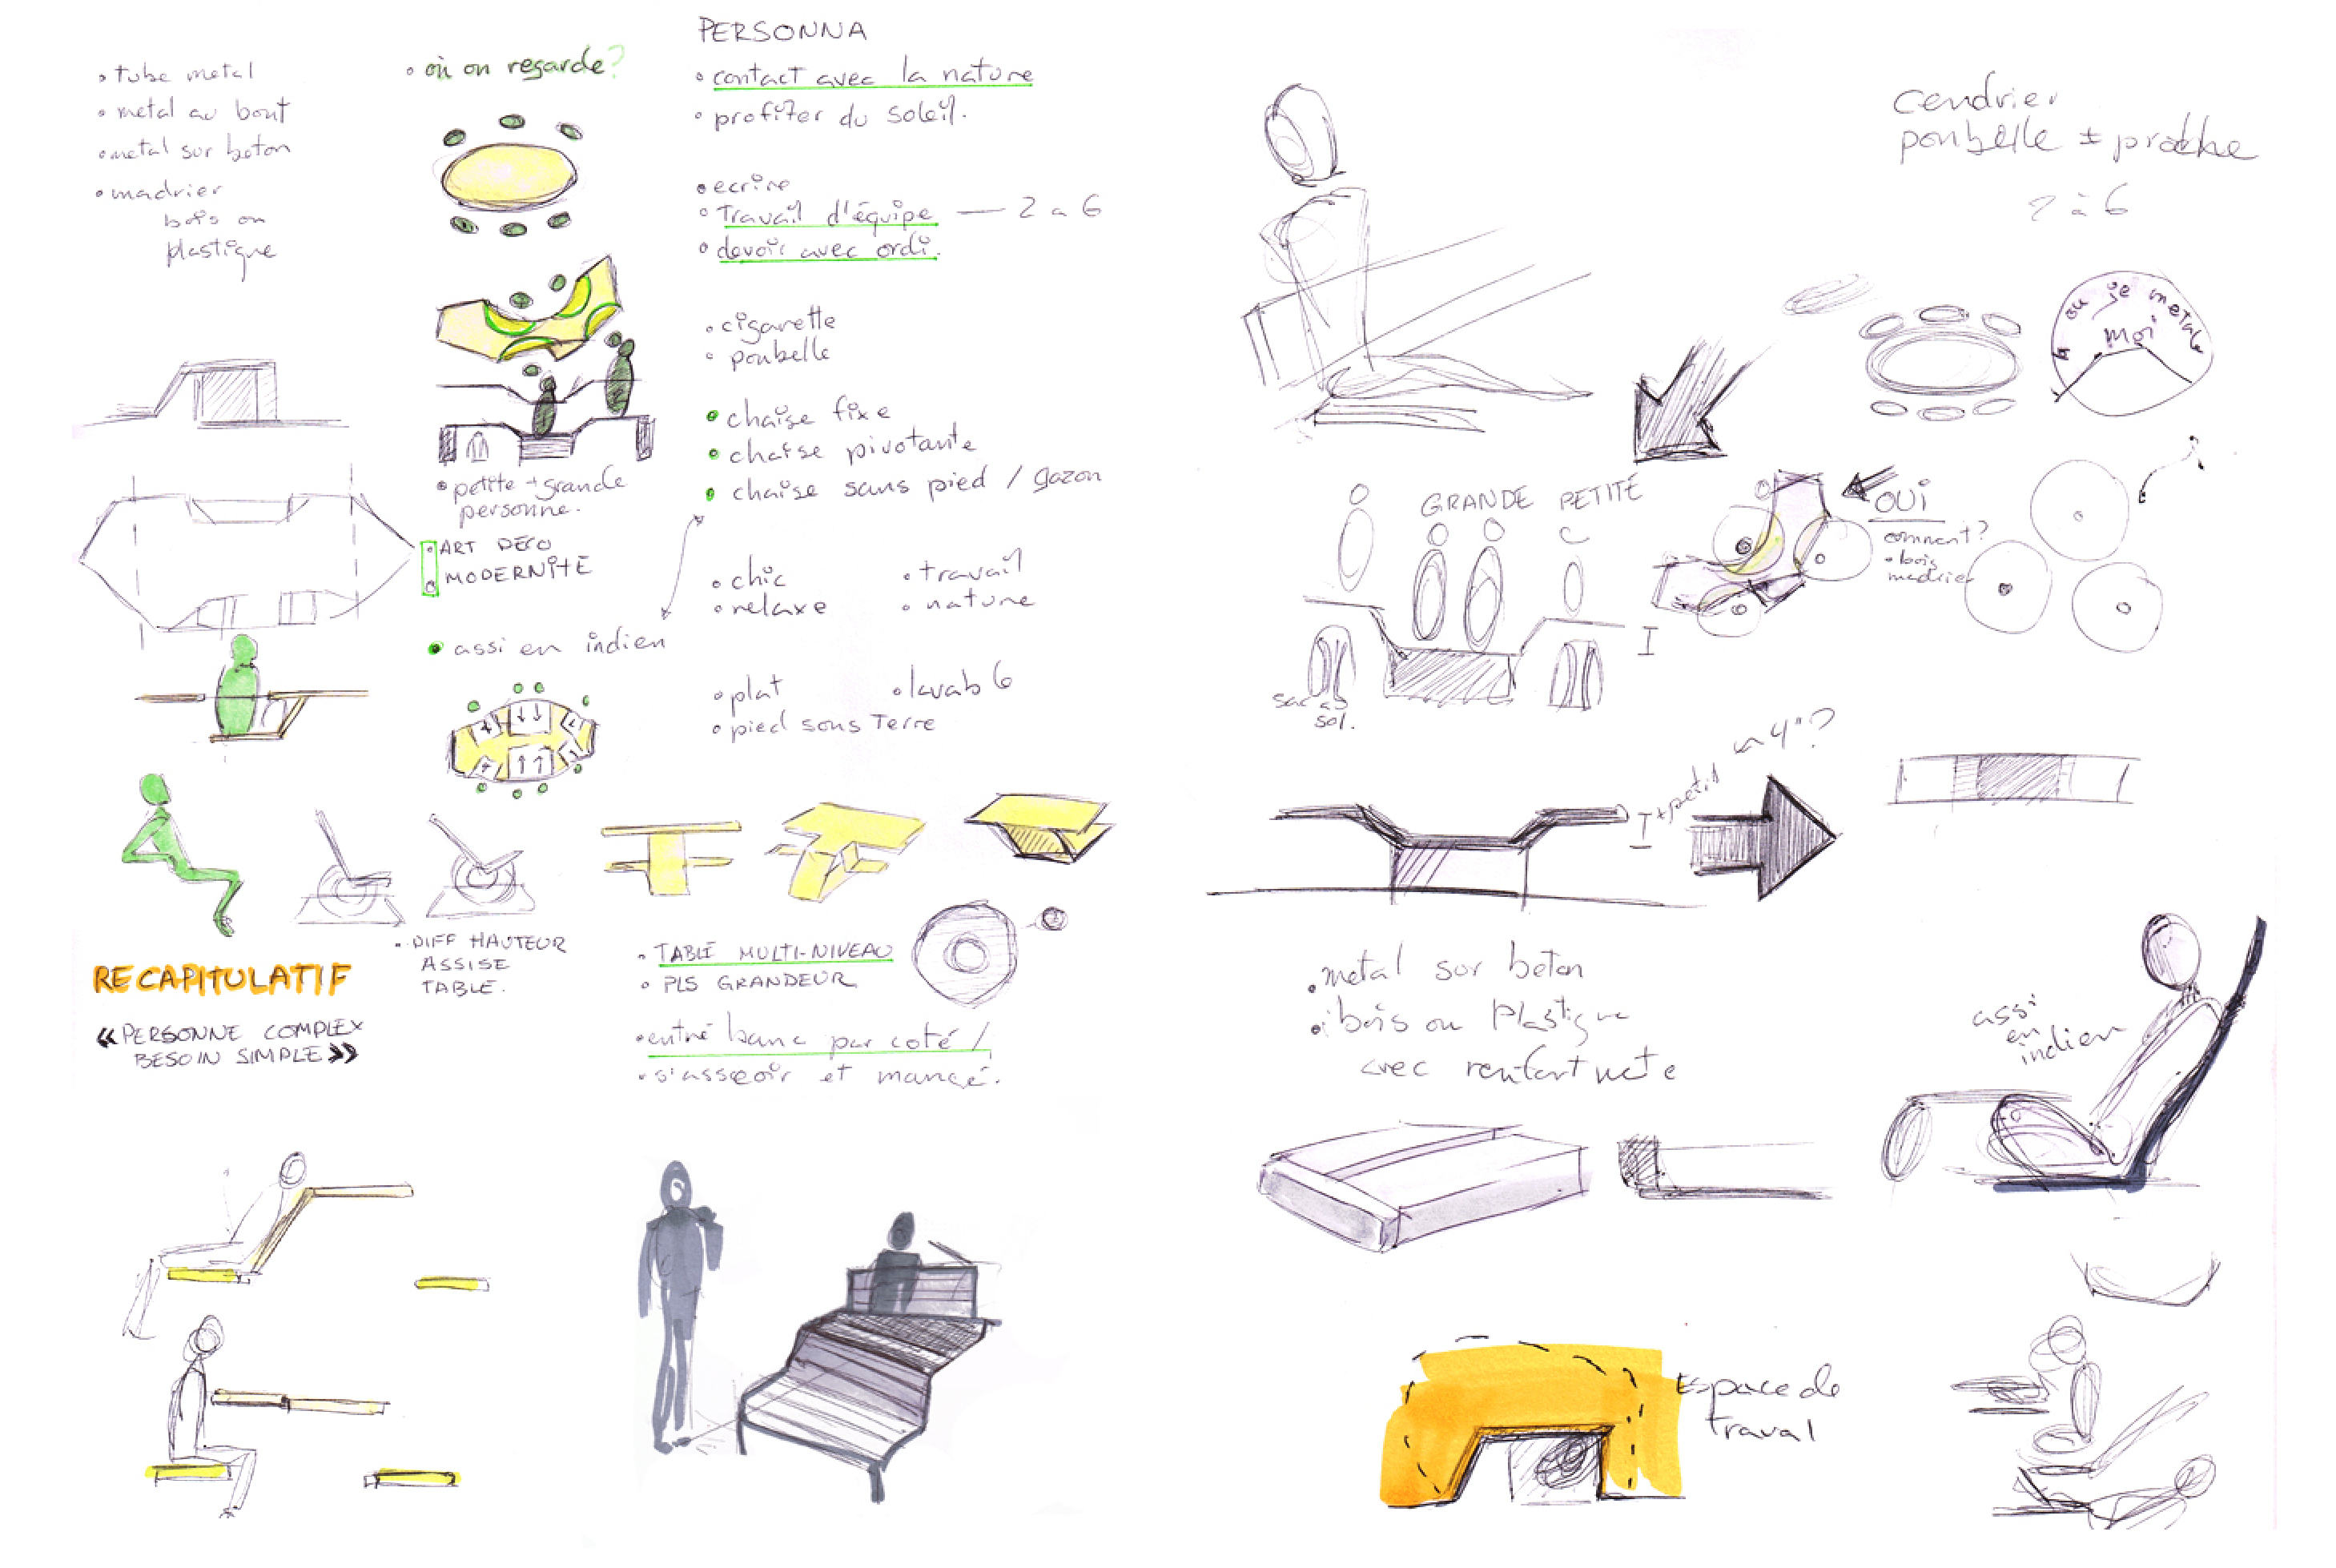 • tube metal
• metal au bout
• metal sur beton
• madrier
bois ou
plastique
• où on regarde?
• petite + grande
personne.
• ART DÉCO
MODERNITÉ
• assi en indien
PERSONNA
• contact avec la nature
• profiter du soleil.
• ecrire
• Travail d'équipe — 2 a 6
• devoir avec ordi.
• cigarette
• poubelle
• chaise fixe
• chaise pivotante
• chaise sans pied / gazon
• chic
• relaxe
• travail
• nature
• plat
• pied sous Terre
• DIFF HAUTEUR
ASSISE
TABLE.
• TABLE MULTI-NIVEAU
• PLS GRANDEUR
• entré banc par coté /
• s'asseoir et mangé.
RECAPITULATIF
«PERSONNE COMPLEX
BESOIN SIMPLE»
cendrier
poubelle ± proche
2 à 6
ou je metale
Moi
GRANDE PETITE
OUI
comment?
• bois
madrier
sac au
sol.
4"?
• metal sur beton
• bois ou plastique
avec renfort
assi
en
indien
Espace de
traval